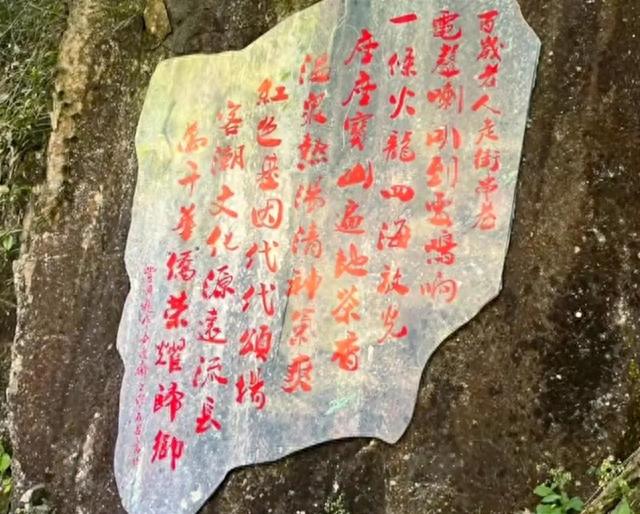 百歲老人走街串巷
電聲喇叭到處鳴响
一條火龍四海放光
座座寶山遍地茶香
温泉熱湯清神氣爽
紅色基因代代頌揚
客潮文化源遠流長
萬千華僑榮耀歸鄉